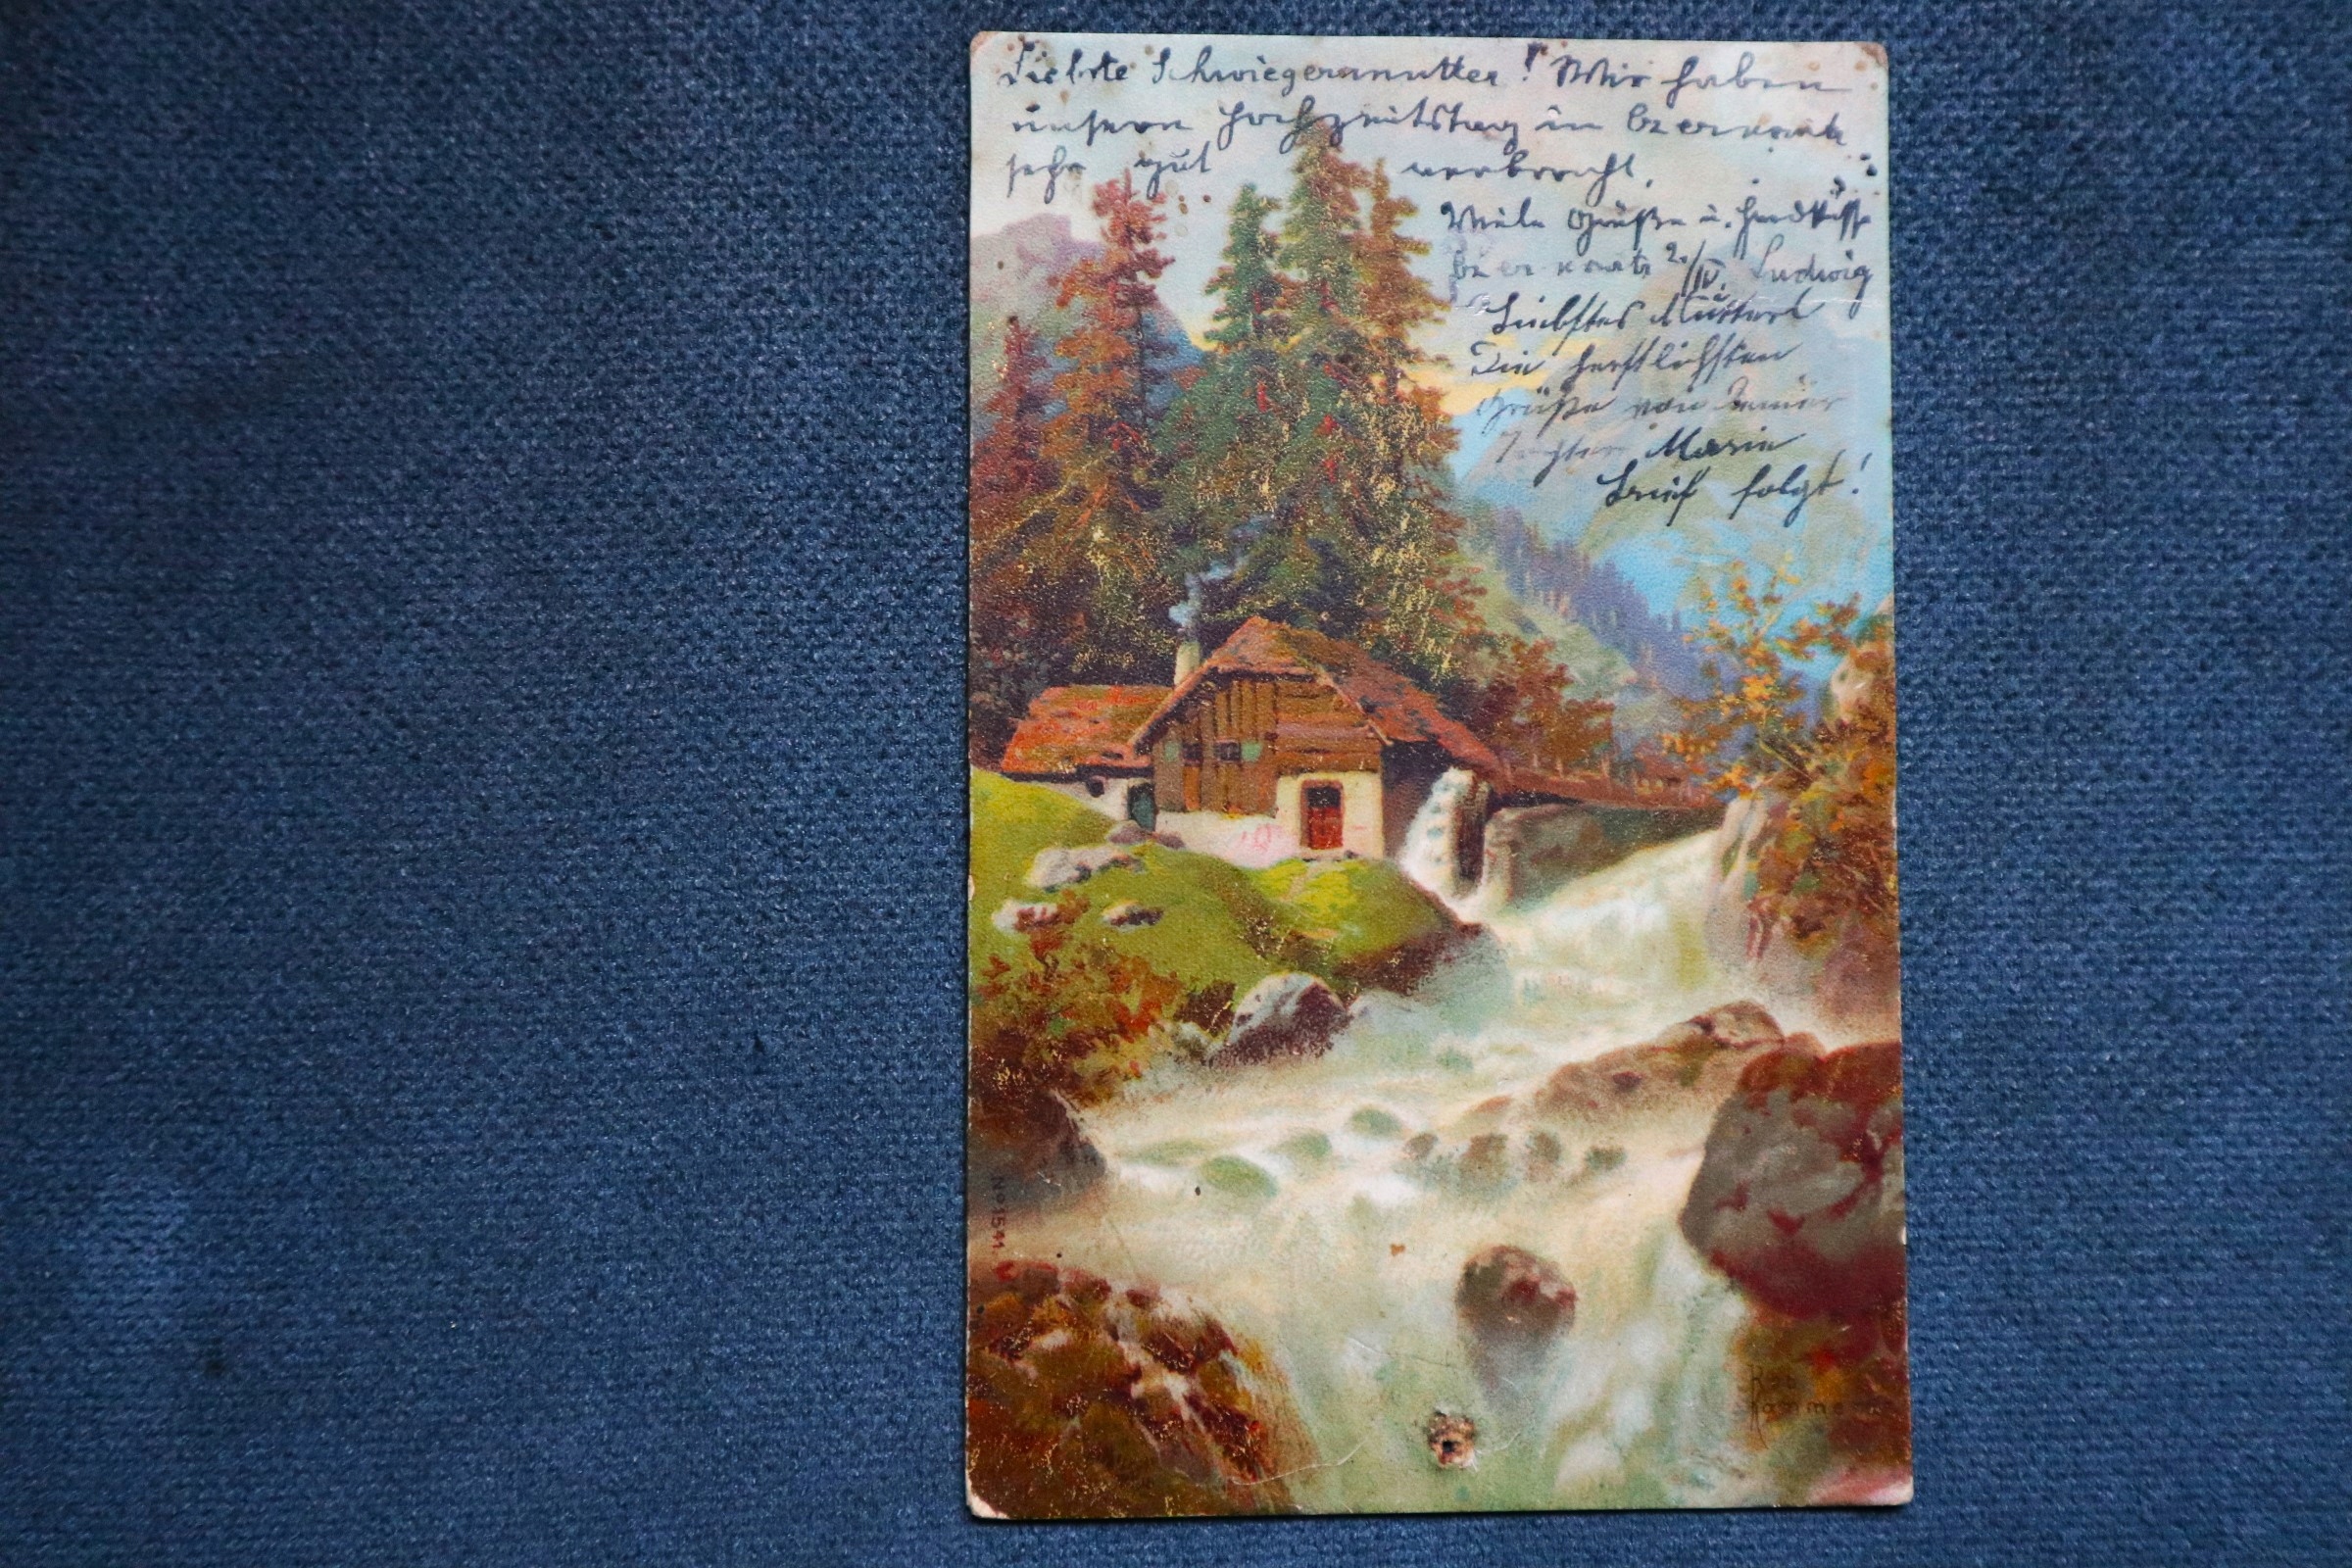 Liebste Schwiegermutter! Wir haben
unsern Hochzeitstag in
sehr gut verbracht.
Viele Grüße u. Handküsse
2./IV. Ludwig
Liebstes Mutterl
Die herzlichsten
Grüße von Deiner
Tochter Marie
Brief folgt!
No 1541.